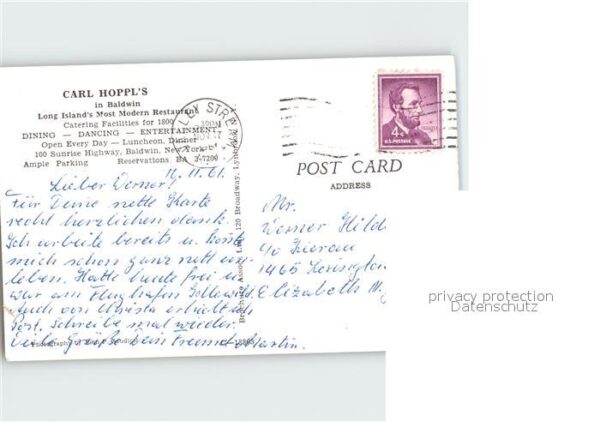 CARL HOPPL'S
in Baldwin
Long Island's Most Modern Restaurant
Catering Facilities for 1800
DINING — DANCING — ENTERTAINMENT
Open Every Day — Luncheon, Dinner
100 Sunrise Highway, Baldwin, New York
Ample Parking Reservations BA 3-7200
LEY STR
NOV 17
4¢
U.S. POSTAGE
POST CARD
ADDRESS
16.11.61.
Lieber Werner!
Für Deine nette Karte
recht herzlichen dank.
Ich arbeite bereits u. könnte
mich schon ganz nett
leben. Hatte heute frei u.
war am Flughafen
Auch von Christa erhielt ich
Post. Schreibe mal wieder.
Viele Grüße Dein Freund Martin.
120 Broadway, Lynbrook
Mr.
Werner Hild
40
1465
Elizabeth N.J
privacy protection
Datenschutz